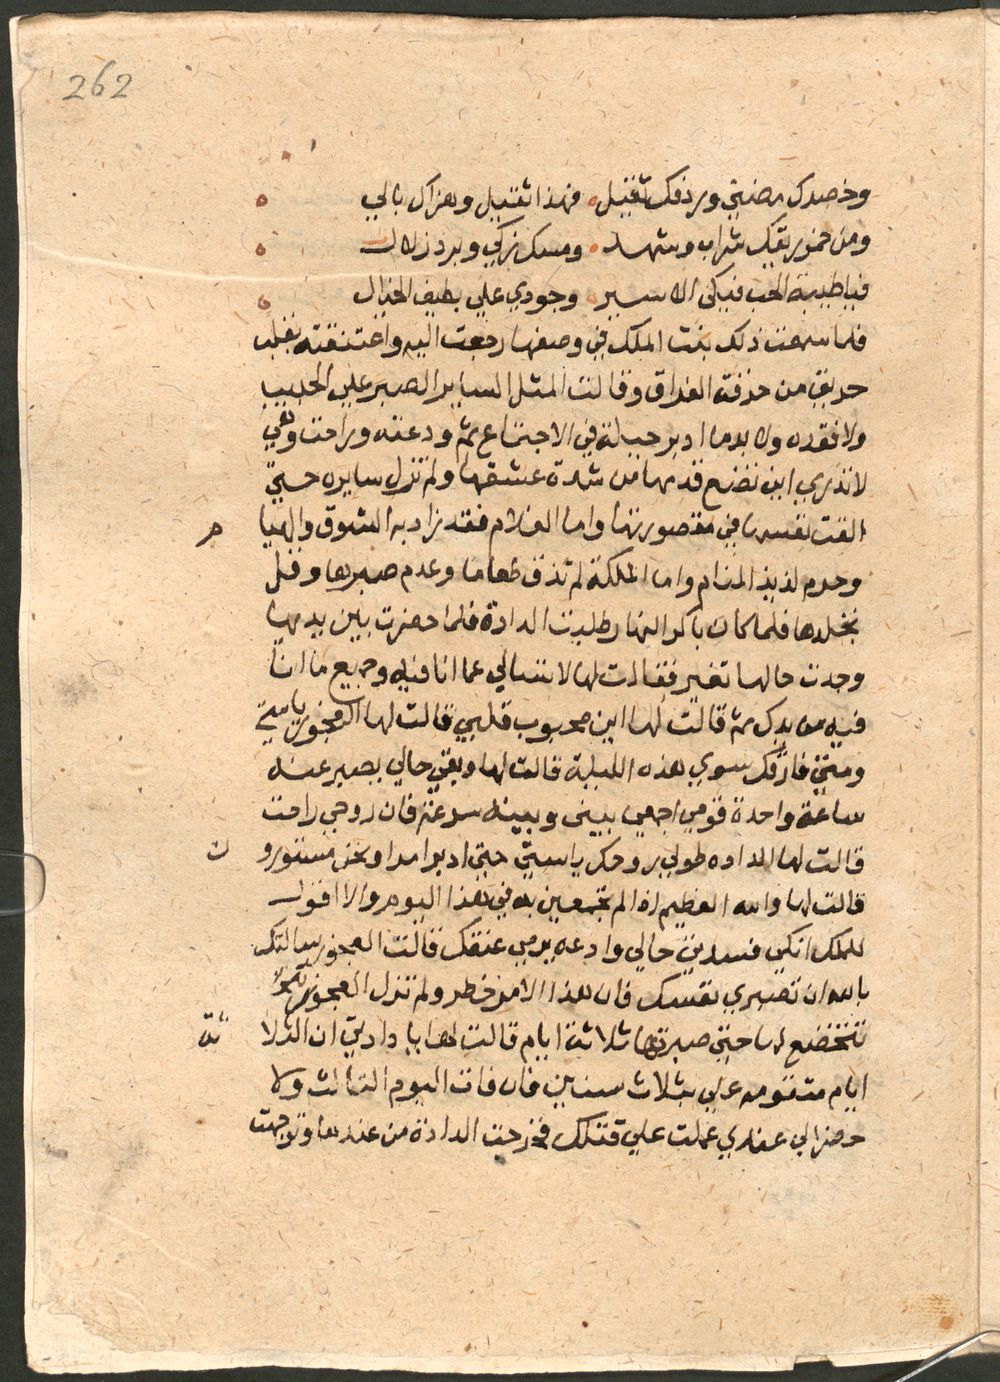 262
وخصرك مضني وردفك ثقيل فهذا ثقيل وهزاك بالي
ومن خمر ريقك شراب وشهد ومسك زكي وبرد زلال
فيا طيبة الحب فيكي الاسير وجودي علي بطيف الخيال
فلما سمعت ذلك بنت الملك في وصفها رجعت اليه واعتنقته بقلب
حريق من حرقة الفراق وقالت المثل الساير الصبر علي الحبيب
ولا فقده ولا بد ما ادبر حيلة في الاجتماع ثم ودعته وراحت وهي
لا تدري اين تضع قدمها من شدة عشقها ولم تزل سايره حتي
القت نفسها في مقصورتها واما الغلام فقد زاد به الشوق والهيا م
وحرم لذيذ المنام واما الملكة لم تذق طعاما وعدم صبرها وقل
تجلدها فلما كان باكر النهار طلبت الدادة فلما حضرت بين يديها
وجدت حالها تغير فقالت لها لا تسالي عما انا فيه وجميع ما انا
فيه من يدك ثم قالت لها اين محبوب قلبي قالت لها العجوز يا ستي
ومتي فارقك سوي هذه الليلة قالت لها وبقي حالي يصبر عنه
ساعة واحدة قومي اجمعي بيني وبينه سرعة فان روحي راحت
قالت لها الداده طولي روحك يا ستي حتي ادبر امرا ونحن مستورو ن
قالت لها والله العظيم اذا لم تجمعين به في هذا اليوم والا اقول
للملك انكي فسدتي حالي وادعه يرمي عنقك قالت العجوز سالتك
بالله ان تصبري نفسك فان هذا الامر خطر ولم تزل العجوز
تتخضع لها حتي صبرتها ثلاثة ايام قالت لها يا دادتي ان الثلا ثة
ايام متقومه علي بثلاث سنين فان فات اليوم الثالث ولا
حضر الي عندي عملت علي قتلك فخرجت الدادة من عندها وتوجهت